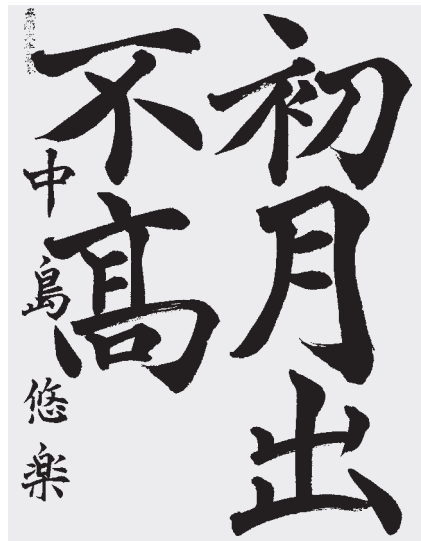 初月出
不髙
中島悠楽